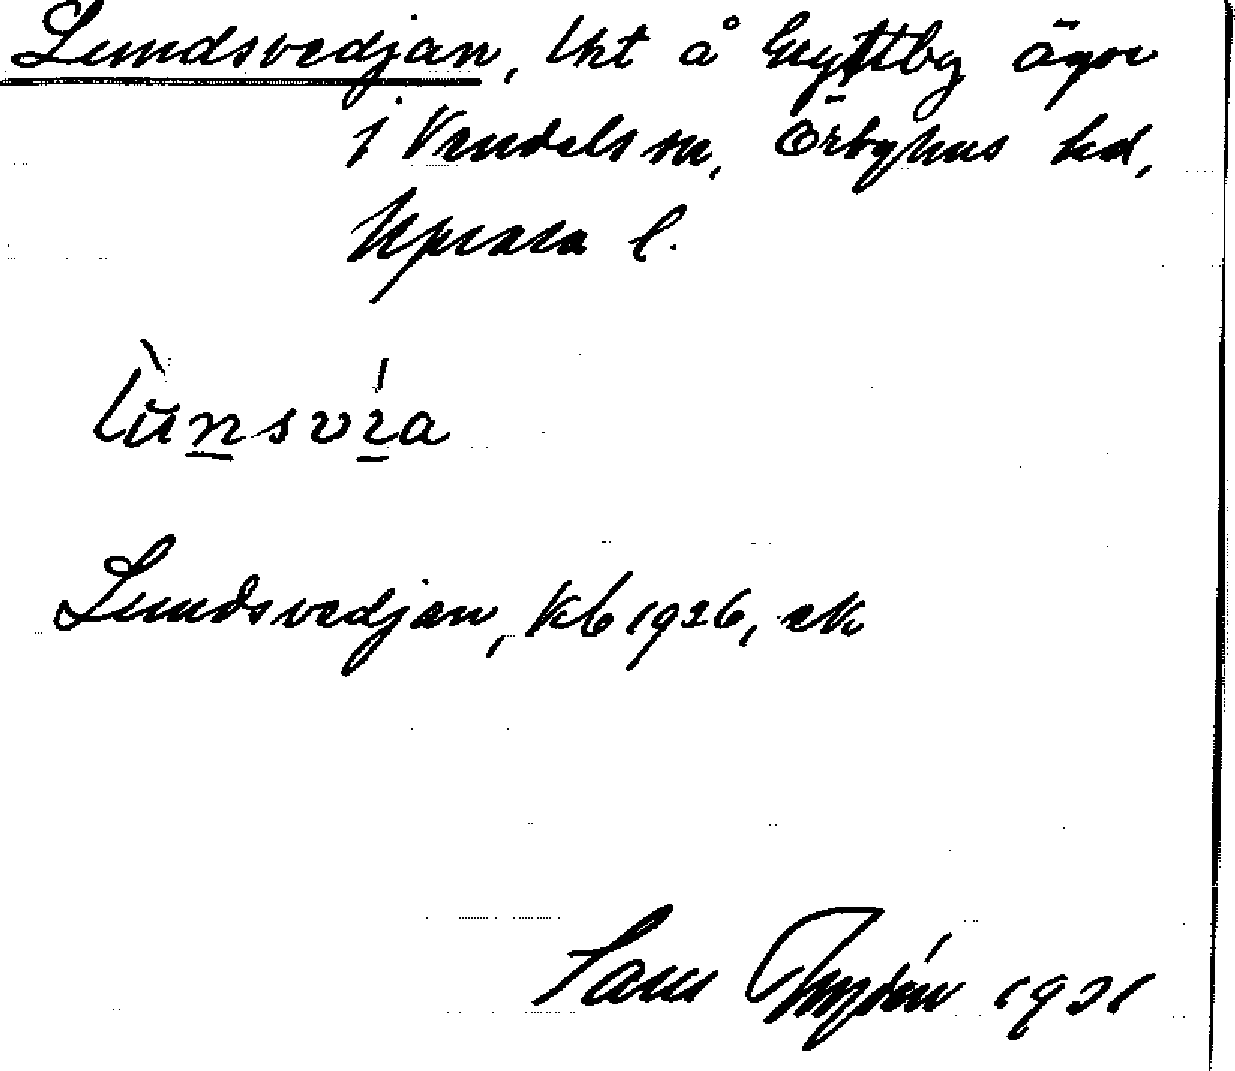 Lundsvedjan, lht å Gryttby ägor
i Vendels sn, Örbyhus hd,
Upsala l.
lùnsvía
Lundsvedjan, Kb 1926, ek
Sam 1931